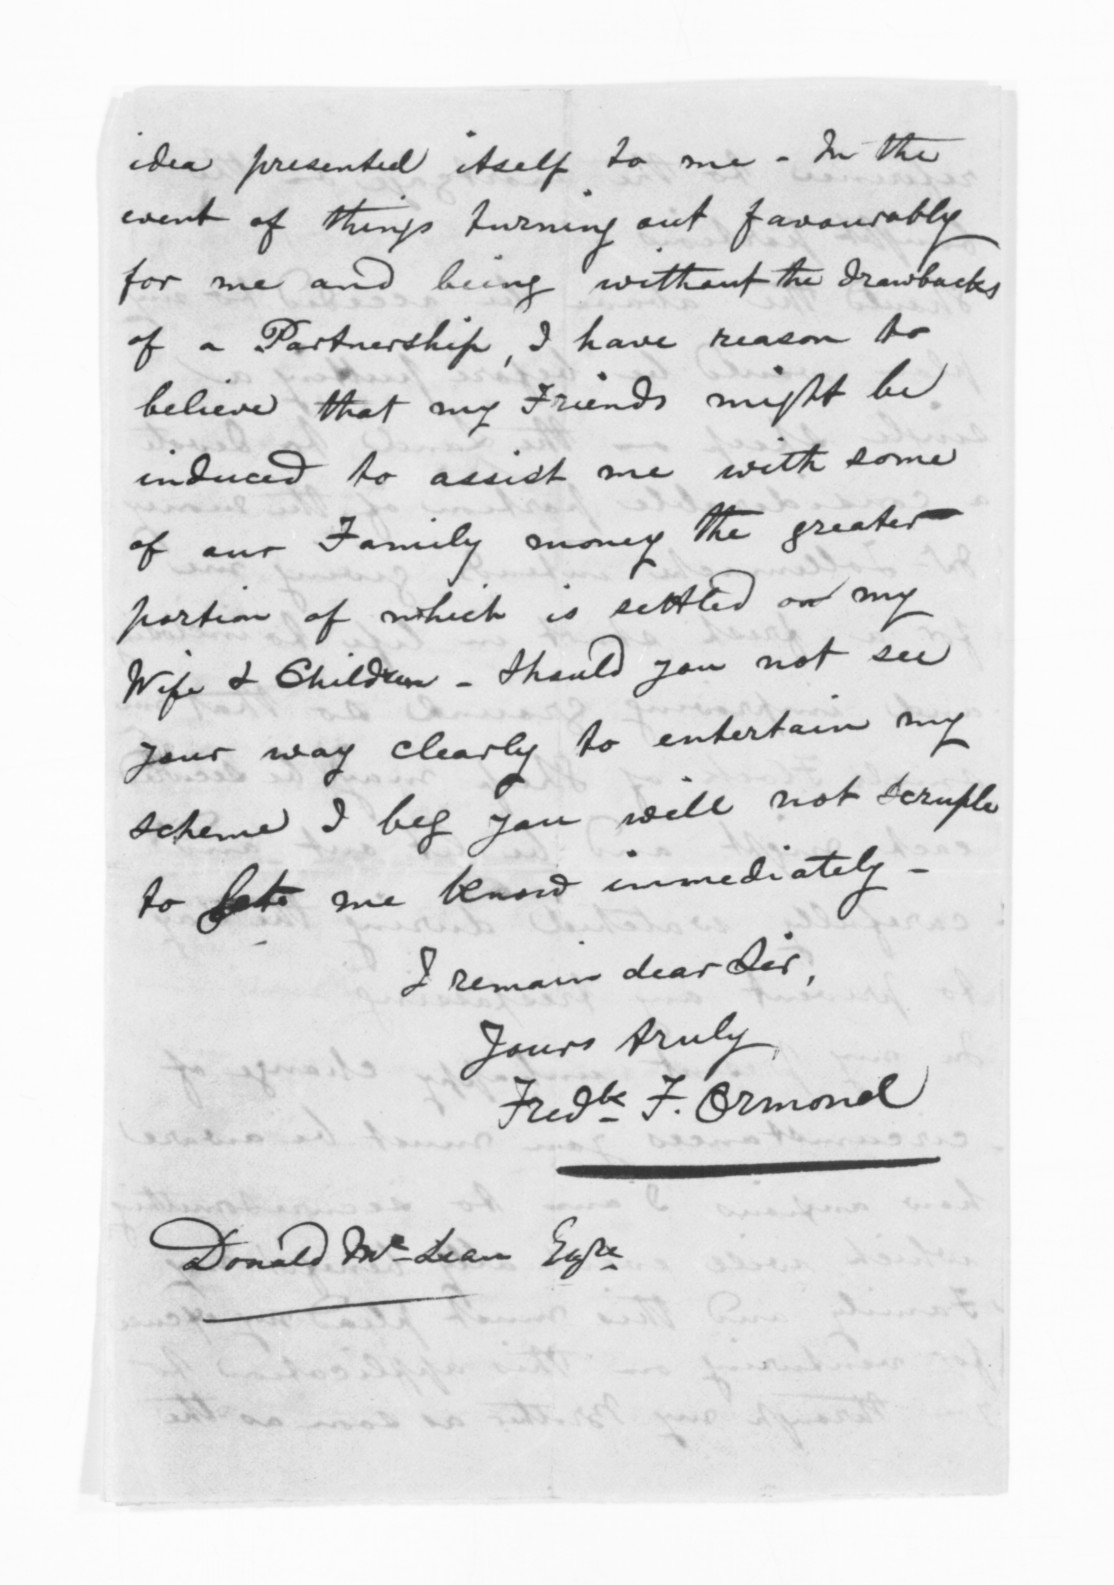 idea presented itself to me - In the
event of things turning out favourably
for me and being without the drawbacks
of a Partnership, I have reason to
believe that my Friends might be
induced to assist me with some
of our Family money the greater
portion of which is settled on my
Wife & Children - Should you not see
your way clearly to entertain my
scheme I beg you will not scruple
to let me know immediately -
I remain dear Sir,
Yours truly
Fredk F. Ormond
Donald McLean Esqre